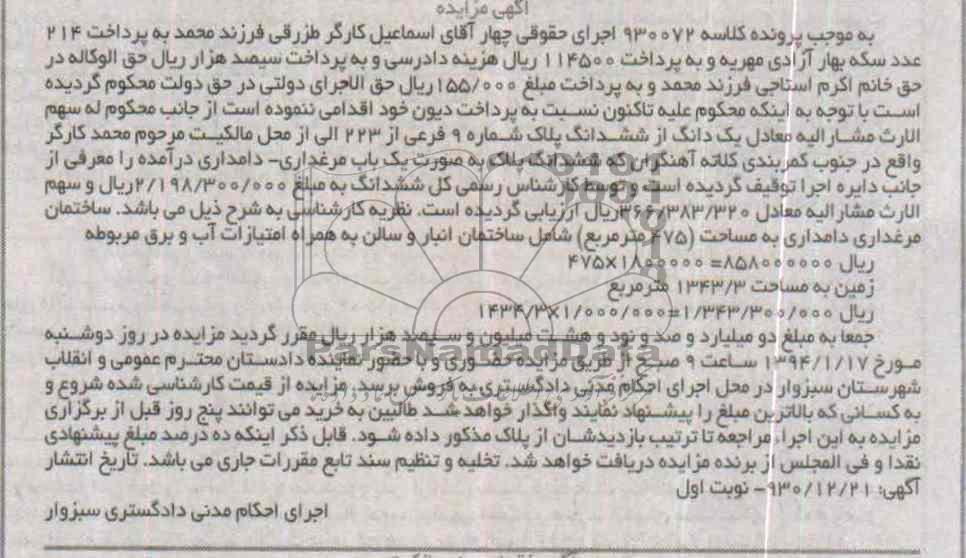 آگهی مزایده
به موجب پرونده کلاسه ۹۳۰۰۷۲ اجرای حقوقی چهار آقای اسماعیل کارگر طزرقی فرزند محمد به پرداخت ۲۱۴
عدد سکه بهار آزادی مهریه و به پرداخت ۱۱۴۵۰۰ ریال هزینه دادرسی و به پرداخت سیصد هزار ریال حق الوکاله در
حق خانم اکرم استاجی فرزند محمد و به پرداخت مبلغ ۱۵۵/۰۰۰ریال حق الاجرای دولتی در حق دولت محکوم گردیده
است با توجه به اینکه محکوم علیه تاکنون نسبت به پرداخت دیون خود اقدامی ننموده است از جانب محکوم له سهم
الارث مشار الیه معادل یک دانگ از ششدانگ پلاک شماره ۹ فرعی از ۲۲۳ الی از محل مالکیت مرحوم محمد کارگر
واقع در جنوب کمربندی کلاته آهنگران که ششدانگ پلاک به صورت یک باب مرغداری- دامداری درآمده را معرفی از
جانب دایره اجرا توقیف گردیده است و توسط کارشناس رسمی کل ششدانگ به مبلغ ۲/۱۹۸/۳۰۰/۰۰۰ریال و سهم
الارث مشار الیه معادل ۳۶۶/۳۸۳/۳۲۰ریال ارزیابی گردیده است. نظریه کارشناسی به شرح ذیل می باشد. ساختمان
مرغداری دامداری به مساحت (۴۷۵مترمربع) شامل ساختمان انبار و سالن به همراه امتیازات آب و برق مربوطه
ریال ۸۵۸۰۰۰۰۰۰= ۴۷۵x۱۸۰۰۰۰۰
زمین به مساحت ۱۳۴۳/۳ مترمربع
ریال ۱/۳۴۳/۳۰۰/۰۰۰=۱۴۳۴/۳x۱/۰۰۰/۰۰۰
جمعا به مبلغ دو میلیارد و صد و نود و هشت میلیون و سیصد هزار ریال مقرر گردید مزایده در روز دوشنبه
مورخ ۱۳۹۴/۱/۱۷ ساعت ۹ صبح از طریق مزایده حضوری و با حضور نماینده دادستان محترم عمومی و انقلاب
شهرستان سبزوار در محل اجرای احکام مدنی دادگستری به فروش برسد. مزایده از قیمت کارشناسی شده شروع و
به کسانی که بالاترین مبلغ را پیشنهاد نمایند واگذار خواهد شد طالبین به خرید می توانند پنج روز قبل از برگزاری
مزایده به این اجرا مراجعه تا ترتیب بازدیدشان از پلاک مذکور داده شود. قابل ذکر اینکه ده درصد مبلغ پیشنهادی
نقدا و فی المجلس از برنده مزایده دریافت خواهد شد. تخلیه و تنظیم سند تابع مقررات جاری می باشد. تاریخ انتشار
آگهی: ۹۳۰/۱۲/۲۱- نوبت اول
اجرای احکام مدنی دادگستری سبزوار
ParsNamadData